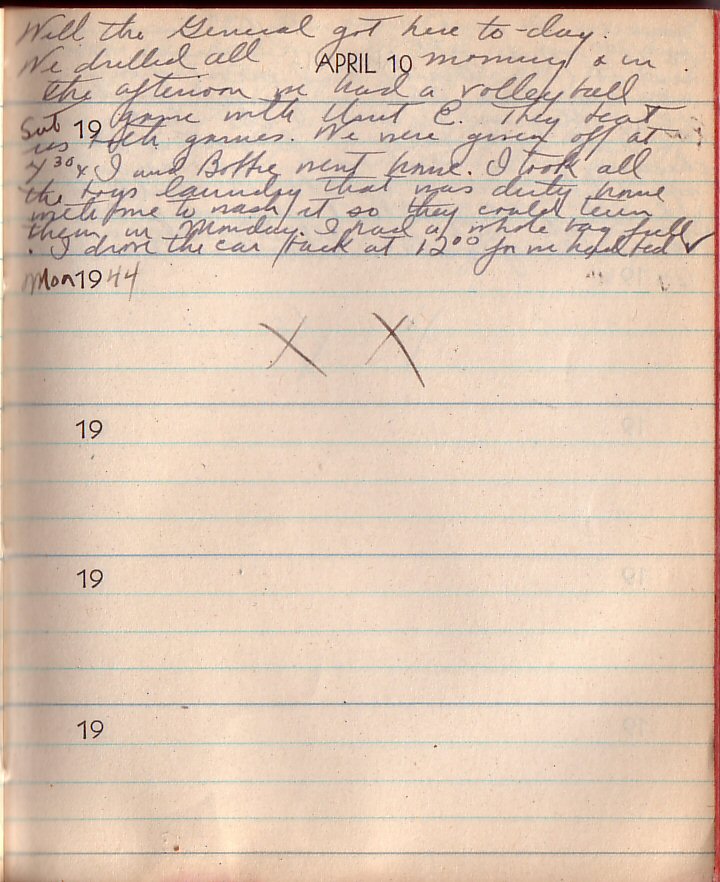 Well the General got here to-day.
We drilled all APRIL 10 morning & in
the afternoon we had a volleyball
game with Unit C. They beat
Sat 19 us both games. We were given off at
4³⁰ & I and Bobbie went home. I took all
the boys laundry that was dirty home
with me to wash it so they could
them in Monday. I had a whole bag full
. I drove the car back at 12⁰⁰ for we had bed ✓
Mon 1944
X X
19
19
19